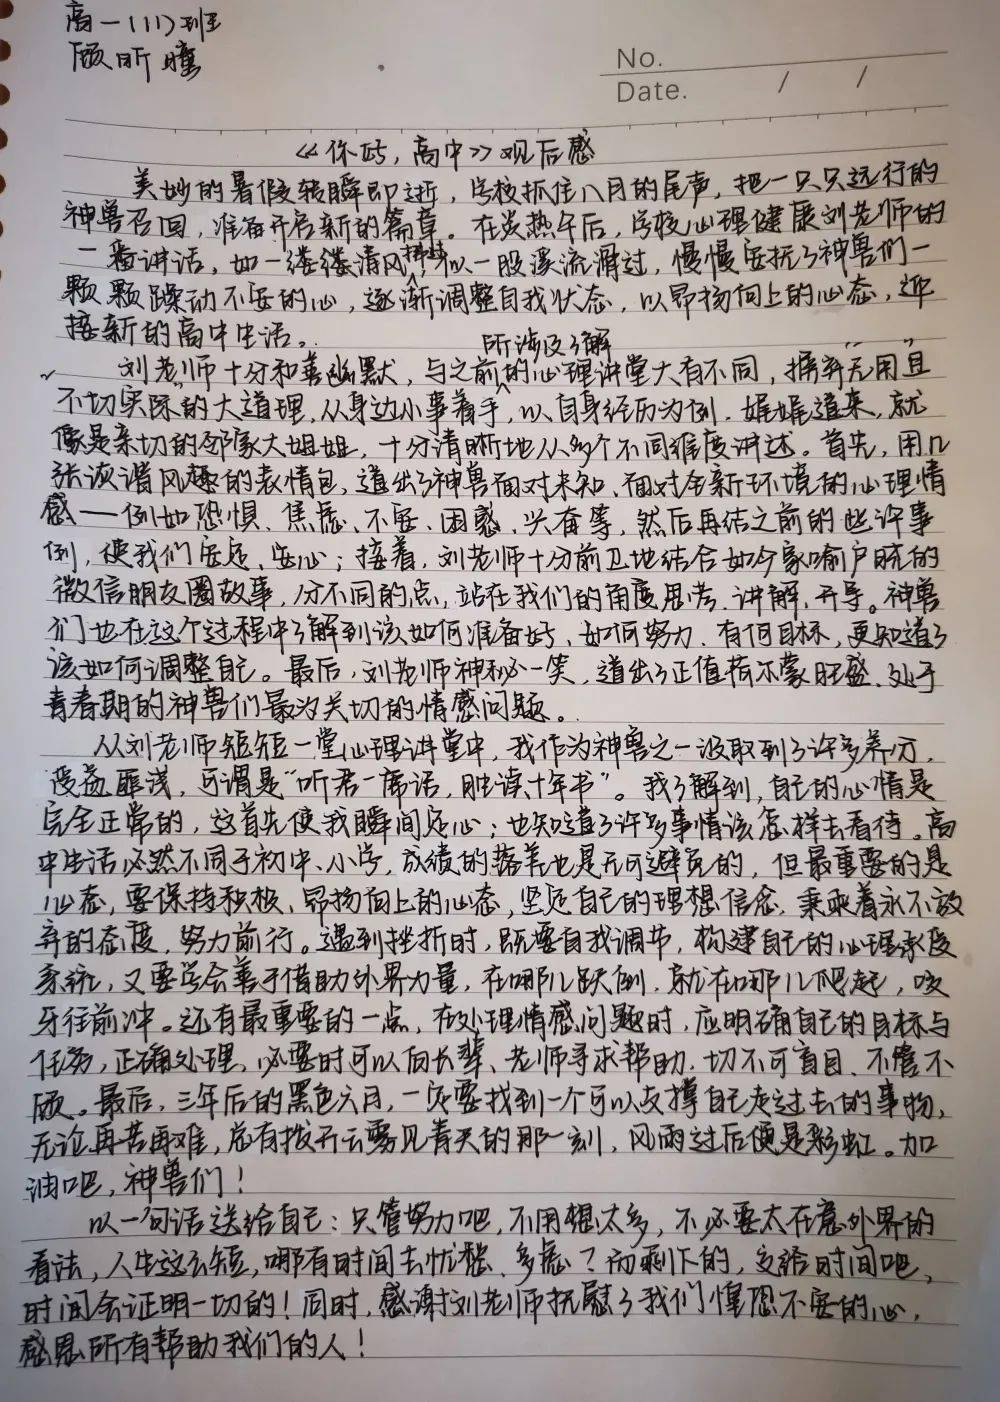 高一(11)班
顾昕瞳
No.
Date. / /
《你好,高中》观后感
美妙的暑假转瞬即逝,学校抓住八月的尾声,把一只只远行的
神兽召回,准备开启新的篇章。在炎热午后,学校心理健康刘老师的
一番讲话,如一缕缕清风拂过,似一股溪流淌过,慢慢安抚了神兽们一
颗颗躁动不安的心,逐渐调整自我状态,以昂扬向上的心态,迎
接新的高中生活。
刘老师十分和善幽默,与之前所涉及了解的心理讲堂大有不同,摒弃“无用”且
“不切实际”的大道理,从身边小事着手,以自身经历为例,娓娓道来,就
像是亲切的邻家大姐姐,十分清晰地从多个不同维度讲述。首先,用几
张诙谐风趣的表情包,道出了神兽面对未知、面对全新环境的心理情
感——例如恐惧、焦虑、不安、困惑、兴奋等,然后再结之前的些许事
例,使我们安定、安心;接着,刘老师十分前卫地结合如今家喻户晓的
微信朋友圈故事,分不同的点,站在我们的角度思考、讲解、开导。神兽
们也在这个过程中了解到该如何准备好、如何努力、有何目标,更知道了
该如何调整自己。最后,刘老师神秘一笑,道出了正值荷尔蒙旺盛、处于
青春期的神兽们最为关切的情感问题。
从刘老师短短一堂心理讲堂中,我作为神兽之一汲取到了许多养分,
受益匪浅,可谓是“听君一席话,胜读十年书”。我了解到,自己的心情是
完全正常的,这首先使我瞬间定心;也知道了许多事情该怎样去看待。高
中生活必然不同于初中、小学,成绩的落差也是无可避免的,但最重要的是
心态,要保持积极、昂扬向上的心态,坚定自己的理想信念,秉承着永不放
弃的态度,努力前行。遇到挫折时,既要自我调节,构建自己的心理承受
系统,又要学会善于借助外界力量,在哪儿跌倒,就在哪儿爬起,咬
牙往前冲。还有最重要的一点,在处理情感问题时,应明确自己的目标与
任务,正确处理,必要时可以向长辈、老师寻求帮助,切不可盲目、不管不
顾。最后,三年后的黑色六月,一定要找到一个可以支撑自己走过去的事物,
无论再苦再难,总有拨开云雾见青天的那一刻,风雨过后便是彩虹。加
油吧,神兽们!
以一句话送给自己:只管努力吧,不用想太多,不必要太在意外界的
看法,人生这么短,哪有时间去忧愁、多虑?而剩下的,交给时间吧,
时间会证明一切的!同时,感谢刘老师抚慰了我们惶恐不安的心,
感恩所有帮助我们的人!